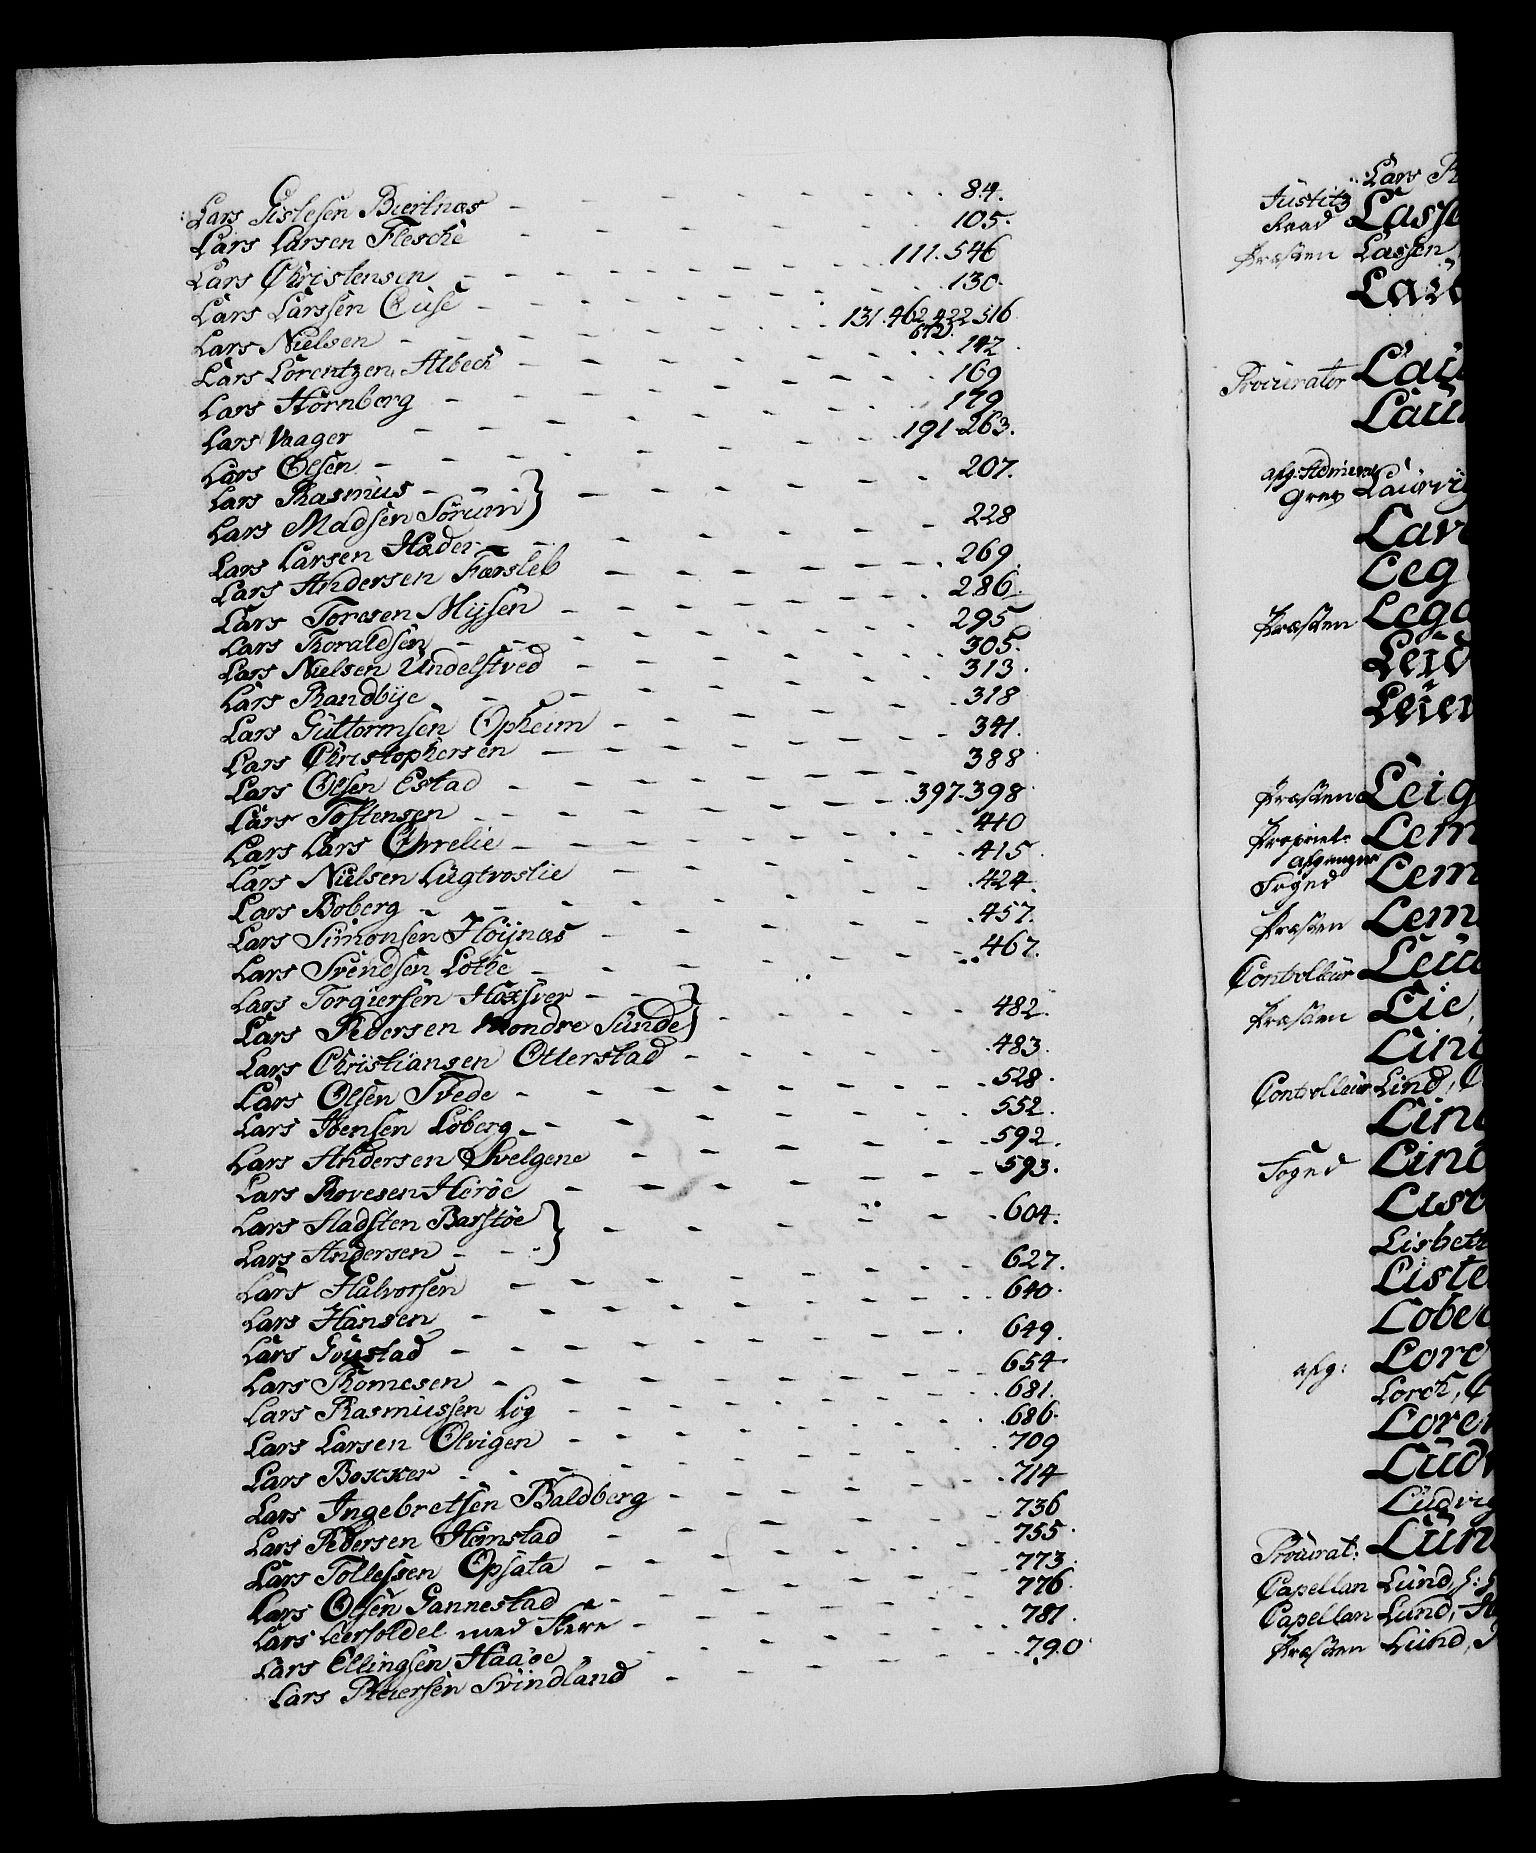 Lars Gislesen Biertnæs - - - 84.
Lars Larsen Flesche - - - 105.
Lars Christensen - - - 111. 546
Lars Larssen Cuse - - - 130.
Lars Nielsen - - - 131. 462 422 516
672.
Lars Lorentzen Albech - - - 142
Lars Hornberg - - - 169
Lars Waager - - - 179
Lars Olsen - - - 191 263.
Lars Rasmus - - - } 207.
Lars Madsen Sörum
Lars Larsen Hæder - - - 228
Lars Andersen Færsleb - - - 269.
Lars Toresen Mysen - - - 286.
Lars Thoraldsen - - - 295
Lars Nielsen Undelstved - - - 305.
Lars Randbye - - - 313.
Lars Guttormsen Opheim - - - 318
Lars Christophersen - - - 341.
Lars Olsen Estad - - - 388
Lars Tostensen - - - 397. 398
Lars Lars Ohrelie - - - 410
Lars Nielsen Lugtvostie - - - 415
Lars Boberg - - - 424.
Lars Simonsen Höynæs - - - 457.
Lars Svendsen Lothe - - - 467.
Lars Torgiersen Haxsver - - - }
Lars Pedersen Nondre Sunde } - - - 482.
Lars Christiansen Otterstad - - - 483.
Lars Olsen Svede - - - 528.
Lars Ibensen Loberg - - - 552.
Lars Andersen Svelgene - - - 592.
Lars Rovesen Heröe - - - 593.
Lars Sladsten Barstöe } - - - 604.
Lars Andersen - - -
Lars Halvorsen - - - 627.
Lars Hansen - - - 640.
Lars Gvustad - - - 649.
Lars Thomesen - - - 654.
Lars Rasmussen Log - - - 681.
Lars Larsen Olvigen - - - 686.
Lars Bokker - - - 709
Lars Ingebretsen Baldberg - - - 714
Lars Pedersen Homstad - - - 736
Lars Tollefsen Opsata - - - 755.
Lars Olsen Gannestad - - - 773.
Lars Leersoldel med Flere - - - 776.
Lars Ellingsen Haaöe - - - 781.
Lars Pedersen Svindland - - - 790
Lars
Justitz
Raad
Præsten Lassen
Procurator
afg:
Grev Laurvig
Præsten
Præsten Leig
Propriet:
afgangne
Foged
Præsten
Controlleur
Præsten Lie,
Controlleur Lind,
Foged
Lisbeth
afg:
Lorck,
Ludvig
Procurat:
Capellan Lund,
Capellan Lund,
Præsten Lund,